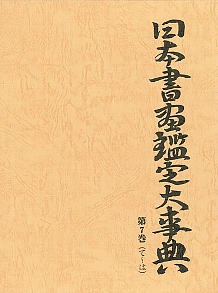 日本書画鑑定大事典
第7巻（て～は）